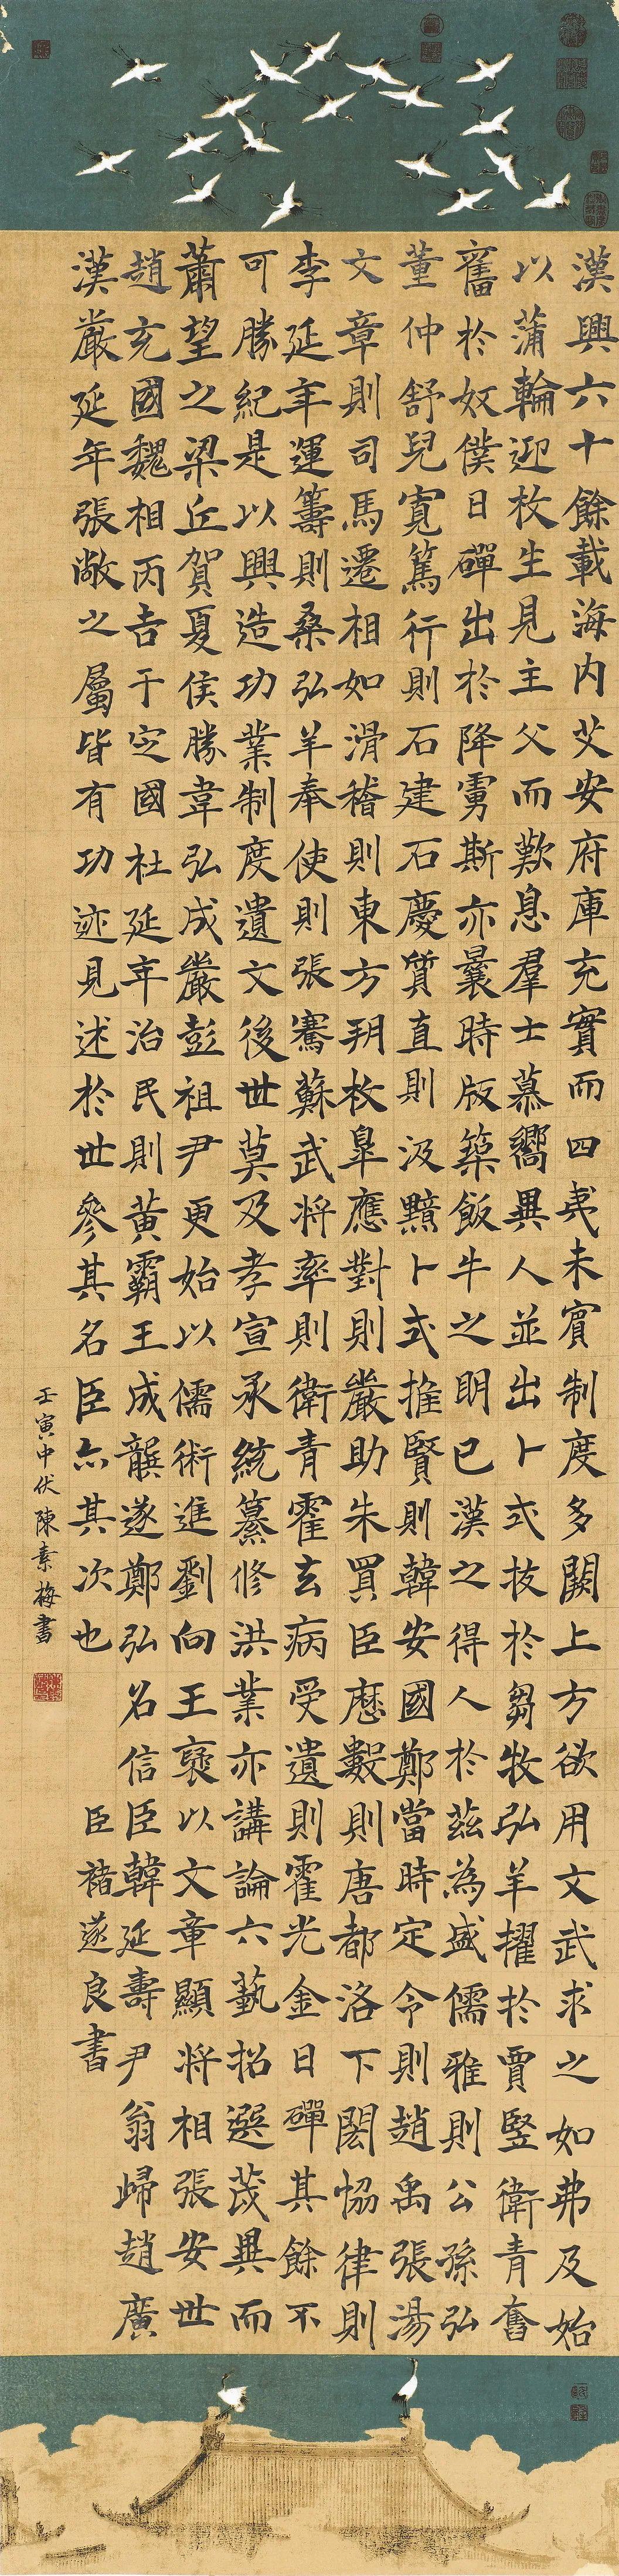 漢興六十餘載海内艾安府庫充實而四夷未賓制度多闕上方欲用文武求之如弗及始
以蒲輪迎枚生見主父而歎息羣士慕嚮異人並出卜式拔於芻牧弘羊擢於賈豎衛青奮
奮於奴僕日磾出於降虜斯亦曩時版築飯牛之明已漢之得人於茲為盛儒雅則公孫弘
董仲舒兒寬篤行則石建石慶質直則汲黯卜式推賢則韓安國鄭當時定令則趙禹張湯
文章則司馬遷相如滑稽則東方朔枚臯應對則嚴助朱買臣歷數則唐都洛下閎協律則
李延年運籌則桑弘羊奉使則張騫蘇武將率則衛青霍去病受遺則霍光金日磾其餘不
可勝紀是以興造功業制度遺文後世莫及孝宣承統纂修洪業亦講論六藝招選茂異而
蕭望之梁丘賀夏侯勝韋弘成嚴彭祖尹更始以儒術進劉向王褒以文章顯將相張安世
趙充國魏相丙吉于定國杜延年治民則黃霸王成龔遂鄭弘召信臣韓延壽尹翁歸趙廣
漢嚴延年張敞之屬皆有功迹見述於世參其名臣亦其次也
臣褚遂良書
壬寅中伏陳素梅書